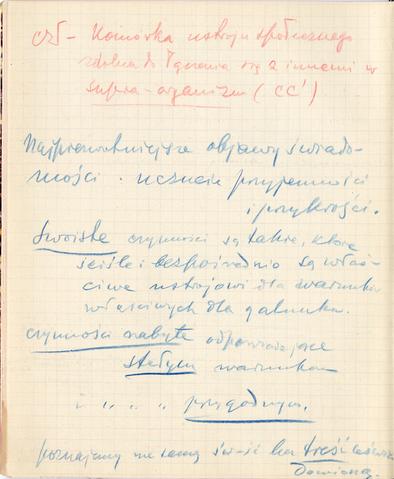 czł – Komórka ustroju społecznego
zdolna do łączenia się z innemi w
supra-organizm (CC')
Najpierwotniejsze objawy świado-
mości. uczucie przyjemności
i przykrości.
Swoiste czynności są takie, które
ściśle i bezpośrednio są właś-
ciwe ustrojowi dla warunków
właściwych dla gatunku.
czynności nabyte odpowiadające
stałym warunkom
i " " " przygodnym.
poznajemy nie samą św-ść lecz treść